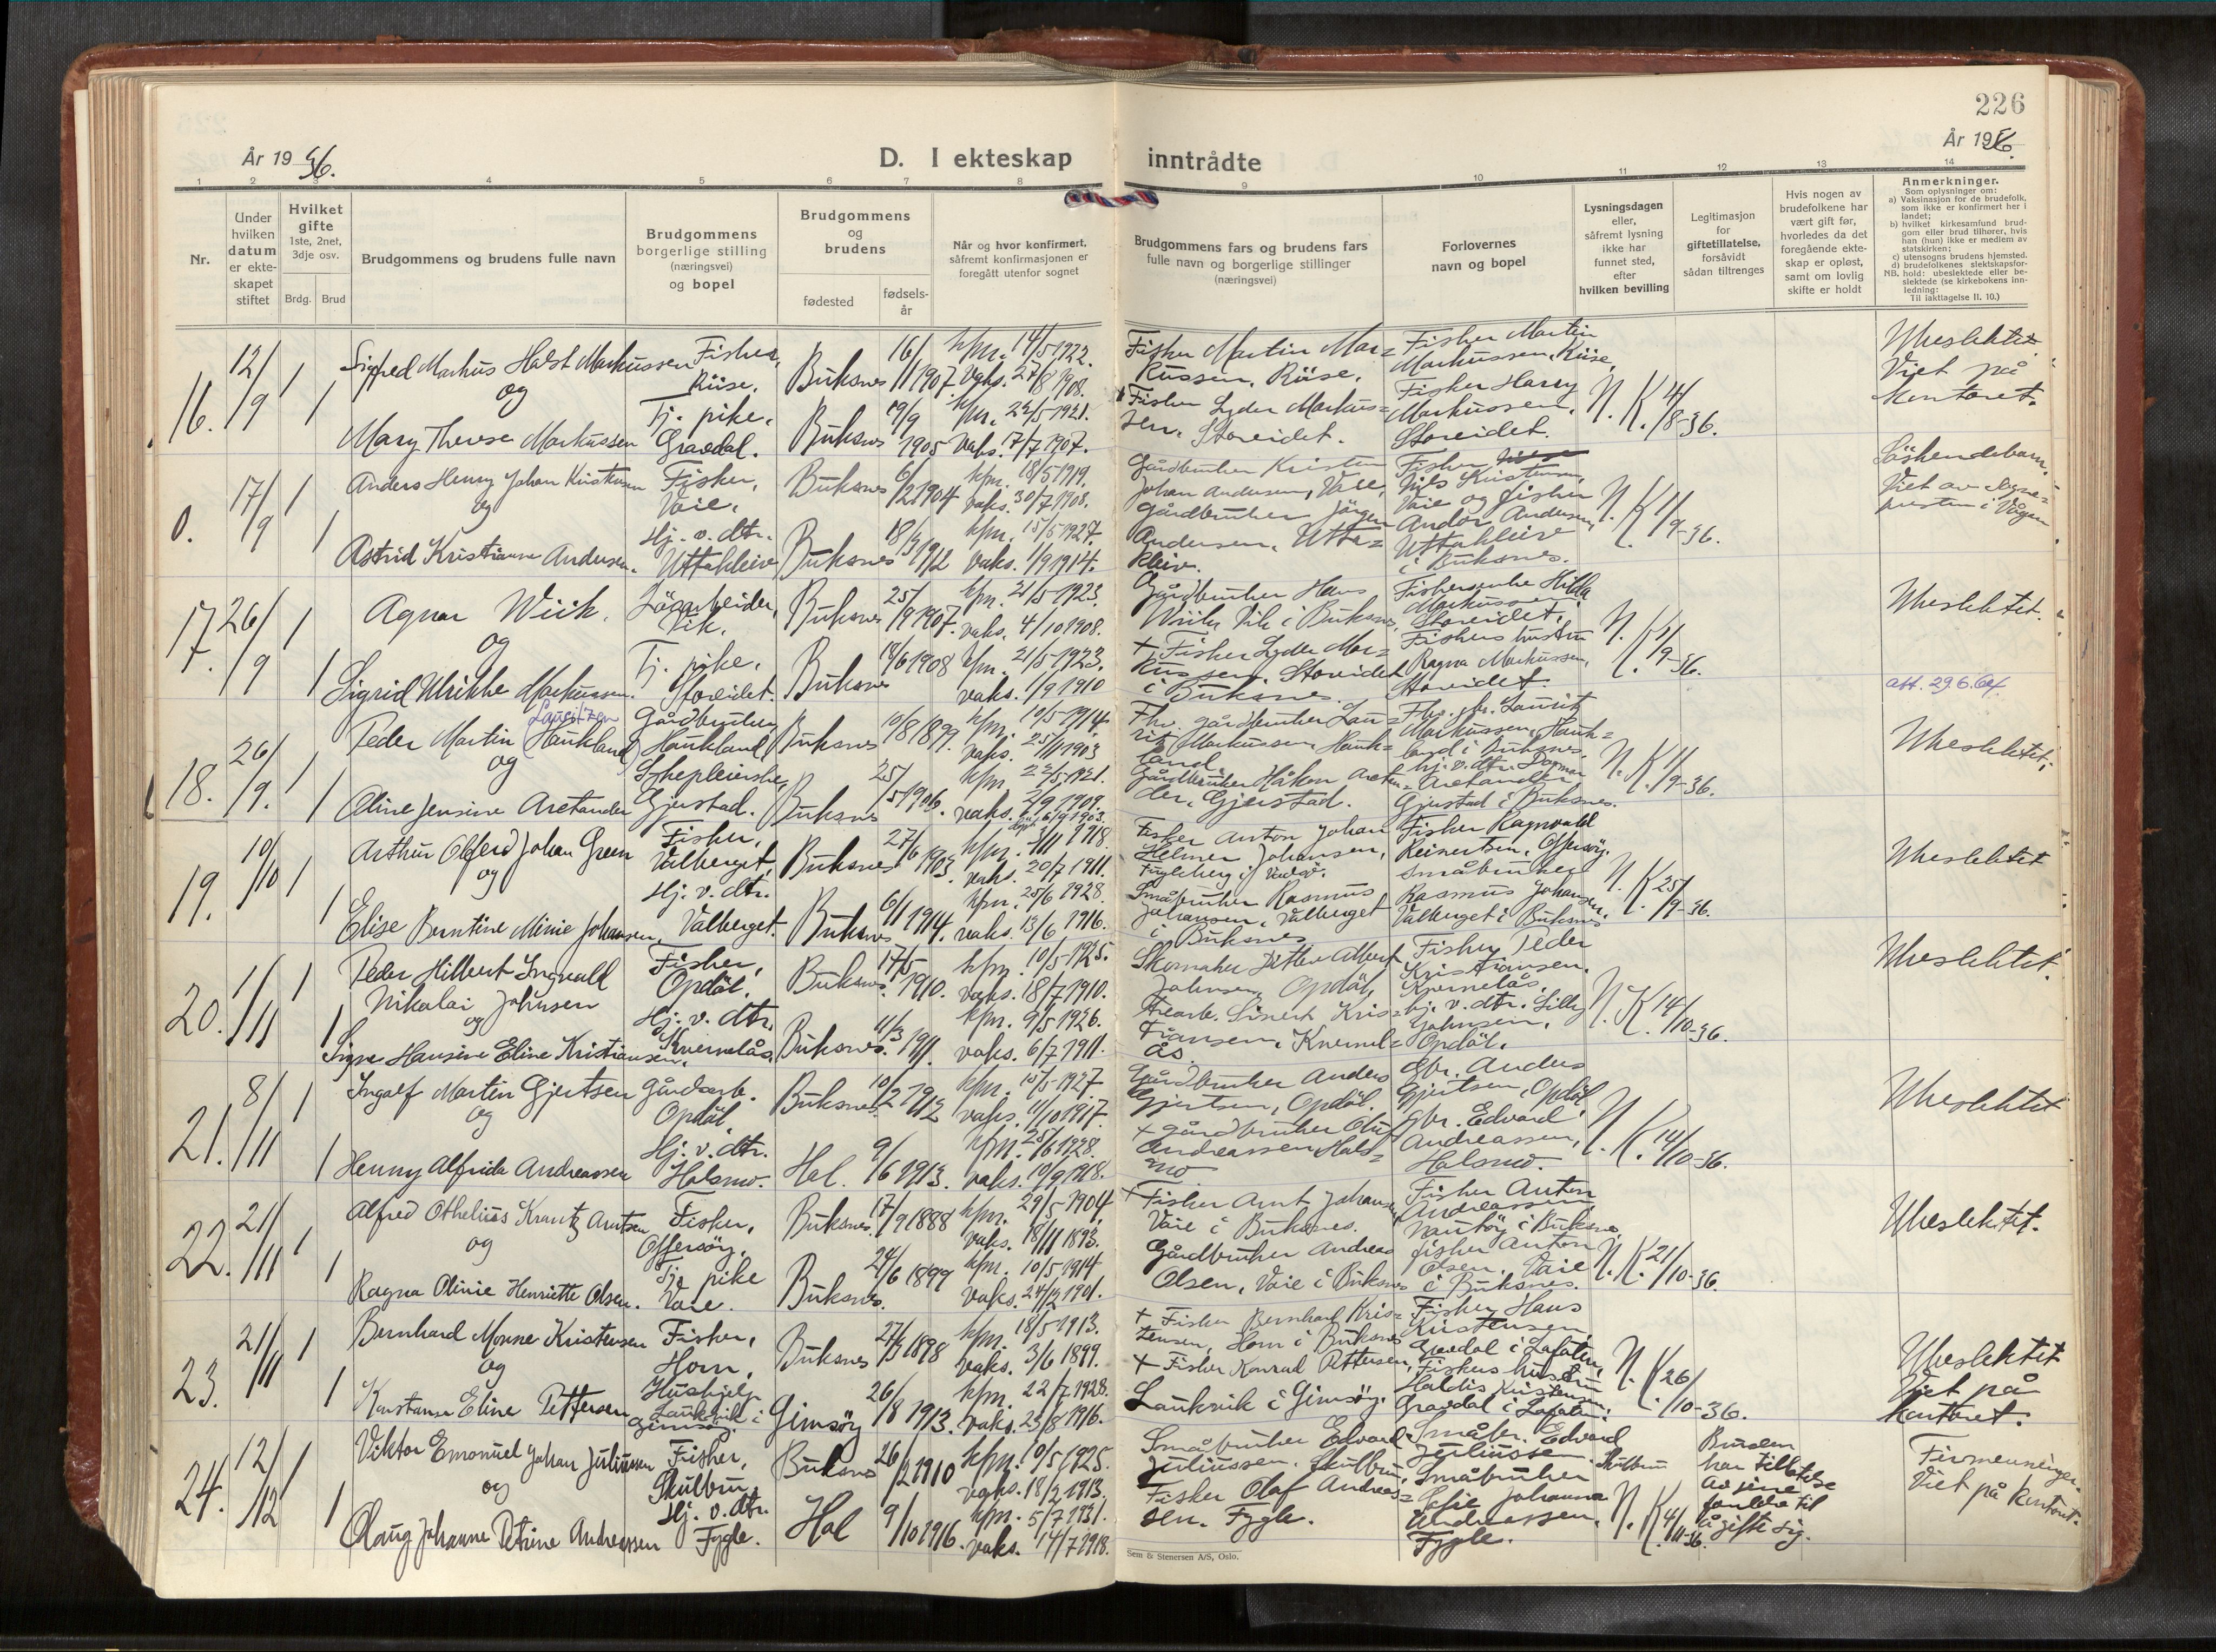 226
År 1936.
D. I ekteskap inntrådte
År 1936.
1 2 3 4 5 6 7 8 9 10 11 12 13 14
Nr.
Under hvilken datum er ekteskapet stiftet
Hvilket gifte 1ste, 2net, 3dje osv.
Brdg. Brud
Brudgommens og brudens fulle navn
Brudgommens borgerlige stilling (næringsvei) og bopel
Brudgommens og brudens
fødested
fødsels-år
Når og hvor konfirmert, såfremt konfirmasjonen er foregått utenfor sognet
Brudgommens fars og brudens fars fulle navn og borgerlige stillinger (næringsvei)
Forlovernes navn og bopel
Lysningsdagen eller, såfremt lysning ikke har funnet sted, efter hvilken bevilling
Legitimasjon for giftetillatelse, forsåvidt sådan tiltrenges
Hvis nogen av brudefolkene har vært gift før, hvorledes da det foregående ekteskap er opløst, samt om lovlig skifte er holdt
Anmerkninger.
Som oplysninger om:
a) Vaksinasjon for de brudefolk, som ikke er konfirmert her i landet;
b) hvilket kirkesamfund brudgom eller brud tilhører, hvis han (hun) ikke er medlem av statskirken;
c) utensogns brudens hjemsted.
d) brudefolkenes slektskapsforhold: ubeslektede eller beslektede (se kirkebokens innledning:
NB.
Til iakttagelse II. 10.)
16. 12/9 1 Sigfred Markus Halst Markussen Fisker, Riise. Buksnes 16/11 1907. kfm. 14/5 1922. vaks. 27/8 1908.
og
1 Mary Therese Markussen Tj. pike, Gravdal. Buksnes 19/9 1905 kfm. 22/5 1921. vaks. 7/7 1907.
Fisker Martin Markussen, Riise.
Fisker Lyder Markussen. Storeidet.
Fisker Martin Markussen, Riise,
Fisker Harry Markussen, Storeidet.
N. K. 4/8-36.
Ubeslektet. Viet på kontoret.
0. 17/9 1 Anders Henry Johan Kristensen Fisker, Vaie. Buksnes 6/2 1904 kfm. 18/5 1919. vaks. 30/7 1908.
og
1 Astrid Kristianne Andersen. Hj. v. dtr. Uttakleiv Buksnes 18/3 1912 kfm. 15/5 1927. vaks. 1/9 1914.
Gårdbruker Kristen Johan Andersen, Vaie,
Gårdbruker Jörgen Andersen, Uttakleiv.
Fisker Nils Kristensen, Vaie og fisker Andor Andersen, Uttakleiv i Buksnes.
N. K. 1/9-36.
Söskendebarn. Viet av sognepresten i Vågan
17. 26/9 1 Agnar Wiik, Lösarbeider, Vik. Buksnes 25/9 1907. kfm. 21/5 1923. vaks. 4/10 1908.
og
1 Sigrid Ulrikke Markussen. Tj. pike, Storeidet. Buksnes 14/6 1908 kfm. 21/5 1923. vaks. 1/9 1910
Gårdbruker Hans Wiik, Vik i Buksnes.
+ Fisker Lyder Markussen, Storeidet i Buksnes.
Fiskerenke Hilda Markussen, Storeidet.
Fiskers hustru Ragna Markussen, Storeidet.
N. K. 1/9-36.
Ubeslektet.
att. 29.6.64.
18. 26/9. 1 Peder Martin (Lauritzen) Haukland Gårdbruker, Haukland Buksnes 10/8 1899. kfm. 10/5 1914. vaks. 25/11 1903
og
1 Oline Jensine Arctander Sykepleierske, Gjerstad. Buksnes 25/5 1906. kfm. 22/5 1921. vaks. 7/9 1909.
Fhv. gårdbruker Laurits Markussen, Haukland.
Gårdbruker Håkon Arctander, Gjerstad.
Fhv. gbr. Laurits Markussen, Haukland i Buksnes, hj. v. dtr. Dagmar Arctander Gjerstad i Buksnes.
N. K. 1/9-36.
Ubeslektet.
19. 10/10 1 Arthur Olferd Johan Green Fisker, Valberget. Buksnes 27/6 1903. kfm. 3/11 1918. vaks. 20/7 1911.
og
1 Elise Berntine Minie Johansen. Hj. v. dtr. Valberget. Buksnes 6/11 1914. kfm. 25/6 1928. vaks. 13/6 1916.
Fisker Anton Johan Helmer Johansen,
Småbruker Rasmus Johansen, Valberget i Buksnes
Fisker Ragnvald Reinertsen, Offersöy.
Småbruker Rasmus Johansen, Valberget i Buksnes
N. K. 25/9-36.
Ubeslektet
20. 1/11 1 Peder Hilbert Ingvald Nikolai Johnsen Fisker, Opdöl. Buksnes. 17/5 1910. kfm. 10/5 1925. vaks. 18/7 1910.
og
1 Signe Hansine Eline Kristiansen, Hj. v. dtr. Kvernelås. Buksnes. 11/3 1911. kfm. 9/5 1926. vaks. 6/7 1911.
Skomaker Ditlev Albert Johnsen Opdöl,
Kristiansen, Kvernelås
Fisker Peder Kristiansen, Kvernelås,
hj. v. dtr. Lilly Johnsen, Opdöl.
N. K. 14/10-36.
Ubeslektet.
21. 8/11 1 Ingolf Martin Gjertsen Gårdsarb. Opdöl. Buksnes 10/2 1912 kfm. 15/5 1927. vaks. 11/10 1917.
og
1 Henny Alfrida Andreassen Hj. v. dtr. Holsmo. Hol. 9/6 1913. kfm. 25/6 1928. vaks. 10/9 1918.
Gårdbruker Anders Gjertsen, Opdöl.
+ Gårdbruker Oluf Andreassen Holsmo
Gbr. Anders Gjertsen, Opdöl,
gbr. Edvard Andreassen, Holsmo.
N. K. 14/10-36.
Ubeslektet
22. 21/11 1 Alfred Othelius Krantz Arntsen Fisker, Offersöy. Buksnes. 17/9 1888 kfm. 29/5 1904, vaks. 18/11 1893.
og
1 Ragna Olinie Henriette Olsen. Tj. pike Vaie. Buksnes. 24/6 1899 kfm. 10/5 1914 vaks. 24/2 1901.
+ Fisker Arnt Johansen, Vaie i Buksnes.
Gårdbruker Andreas Olsen, Vaie i Buksnes
Fisker Anton Andreassen i Buksnes,
fisker Anton Olsen, Vaie i Buksnes.
N. K. 21/10-36.
Ubeslektet.
23. 21/11 1 Bernhard Monne Kristensen Fisker, Horn, Buksnes 27/3 1898 kfm. 18/5 1913. vaks. 3/6 1899.
og
1 Konstanse Eline Pettersen Hushjelp Laukvik i Gimsöy. Gimsöy 26/8 1913. kfm. 22/7 1928. vaks. 23/8 1916.
+ Fisker Bernhard Kristensen, Horn i Buksnes
+ Fisker Konrad Pettersen, Laukvik i Gimsöy.
Fisker Hans Kristensen Gravdal i Lofoten,
Fiskers hustru Haldis Kristensen Gravdal i Lofoten.
N. K. 26/10-36.
Ubeslektet Viet på kontoret.
24. 12/12 1 Viktor Emanuel Johan Juliussen Fisker, Skulbru. Buksnes 26/2 1910 kfm. 10/5 1925. vaks. 18/2 1913.
og
1 Olaug Johanne Petrine Andreassen Hj. v. dtr. Fygle. Hol 9/10 1916. kfm. 5/7 1931. vaks. 14/7 1918.
Småbruker Edvard Juliussen. Skulbru.
Fisker Olaf Andreassen. Fygle.
Småbr. Edvard Juliussen. Skulbru
Småbruker Johanna Andreassen, Fygle.
N. K. 4/11-36.
Bruden har tillatelse av sine foreldre til å gifte sig.
Firmenninger. Viet på kontoret.
Sem & Stenersen A/S, Oslo.